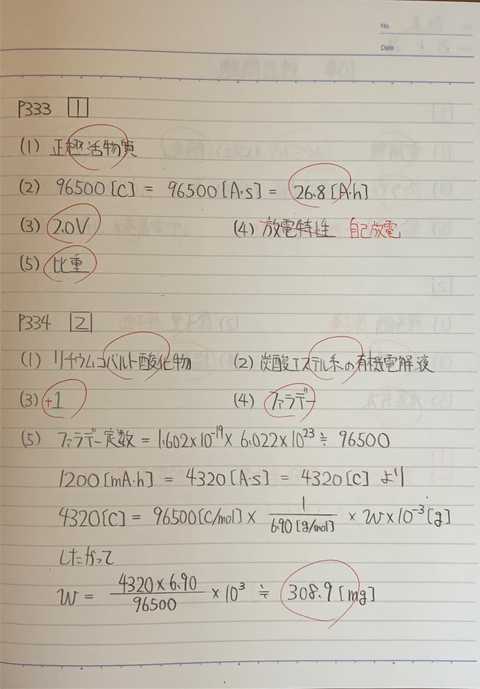 No.
Date
P333 1
(1) 正極活物質
(2) 96500[C] = 96500[A·s] = 26.8[A·h]
(3) 2.0V (4) 放電特性 自己放電
(5) 比重
P334 2
(1) リチウムコバルト酸化物 (2) 炭酸エステル系の有機電解液
(3) +1 (4) ファラデー
(5) ファラデー定数 = 1.602×10⁻¹⁹× 6.022×10²³ ≒ 96500
1200[mA·h] = 4320[A·s] = 4320[C] より
4320[C] = 96500[C/mol] × 1/6.90[g/mol] × w×10⁻³[g]
したがって
w = 4320×6.90/96500 ×10³ ≒ 308.9[mg]